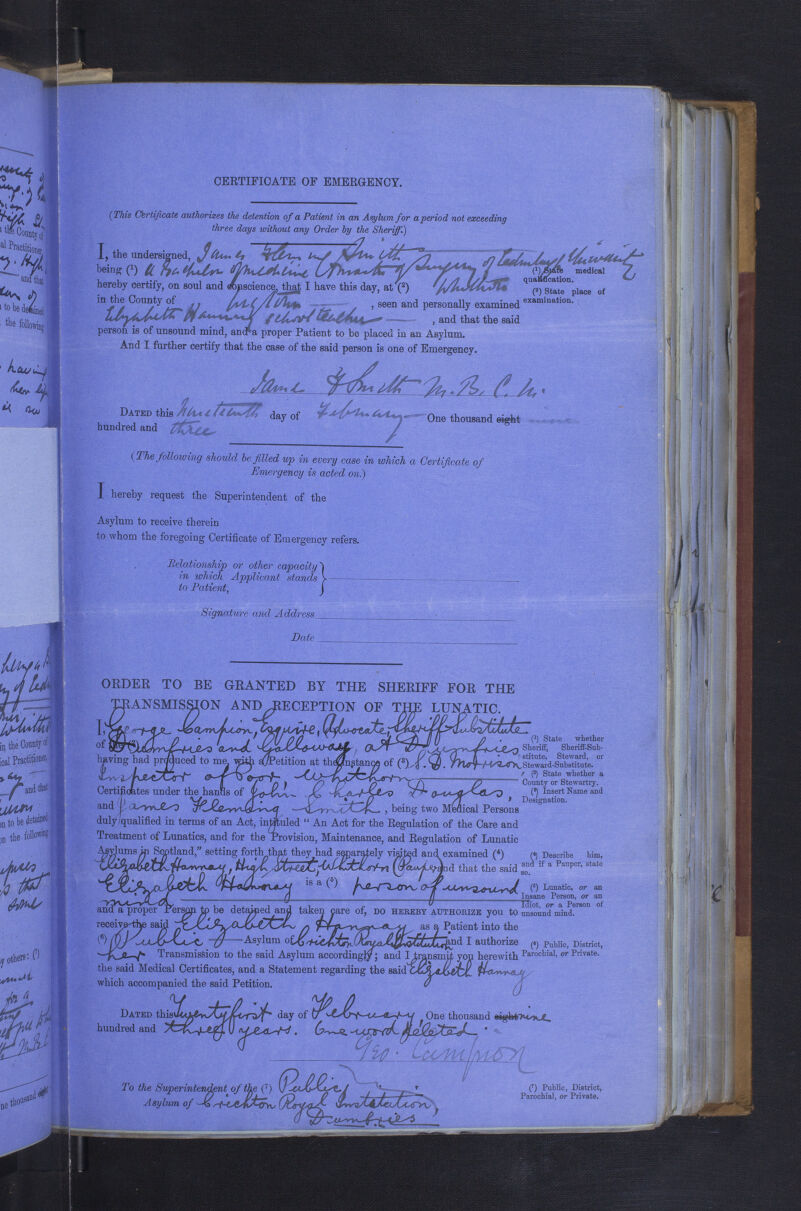 CERTIFICATE OF EMERGENCY.
(This Certificate authorizes the detention of a Patient in an Asylum for a period not exceeding
three days without any Order by the Sheriff.)
I, the undersigned, James Fleming Smith
being (1) a Bachelor of medicine & master of Surgery of Edinburgh University
(1) State medical
qualification.
hereby certify, on soul and conscience, that I have this day, at (2) Whithorn
(2) State place of
examination.
in the County of Wigtown, seen and personally examined
Elizabeth Hannay school teacher, and that the said
person is of unsound mind, and a proper Patient to be placed in an Asylum.
And I further certify that the case of the said person is one of Emergency.
James F Smith M.B. C.M.
DATED this Nineteenth day of February One thousand eight nine
hundred and three
(The following should be filled up in every case in which a Certificate of
Emergency is acted on.)
I hereby request the Superintendent of the
Asylum to receive therein
to whom the foregoing Certificate of Emergency refers.
Relationship or other capacity
in which Applicant stands
to Patient,
Signature and Address
Date
ORDER TO BE GRANTED BY THE SHERIFF FOR THE
TRANSMISSION AND RECEPTION OF THE LUNATIC.
I, George Campion, Esquire, Advocate, Sheriff Substitute
of (2) Dumfries and Galloway, at Dumfries
(1) State whether
Sheriff, Sheriff-Sub-
stitute, Steward, or
Steward-Substitute.
having had produced to me, with a Petition at the instance of (3) S. D. Morrison
(2) State whether a
County or Stewartry.
Inspector of Poor, Whithorn
(3) Insert Name and
Designation.
Certificates under the hands of John Charles Douglas,
and James Fleming Smith, being two Medical Persons
duly qualified in terms of an Act, intituled "An Act for the Regulation of the Care and
Treatment of Lunatics, and for the Provision, Maintenance, and Regulation of Lunatic
Asylums in Scotland," setting forth that they had separately visited and examined (4)
(4) Describe him,
and if a Pauper, state
so.
Elizabeth Hannay, High Street, Whithorn (Pauper) and that the said
Elizabeth Hannay is a (5) person of unsound
(5) Lunatic, or an
Insane Person, or an
Idiot, or a Person of
unsound mind.
mind
and a proper Person to be detained and taken care of, DO HEREBY AUTHORIZE YOU to
receive the said Elizabeth Hannay as a Patient into the
(6) Public Asylum of Crichton Royal Institution and I authorize
(6) Public, District,
Parochial, or Private.
her Transmission to the said Asylum accordingly; and I transmit you herewith
the said Medical Certificates, and a Statement regarding the said Elizabeth Hannay
which accompanied the said Petition.
DATED this Twenty first day of February One thousand eight nine
hundred and three years. One word deleted.
Geo. Campion
To the Superintendent of the (7) Public
(7) Public, District,
Parochial, or Private.
Asylum of Crichton Royal Institution,
Dumfries